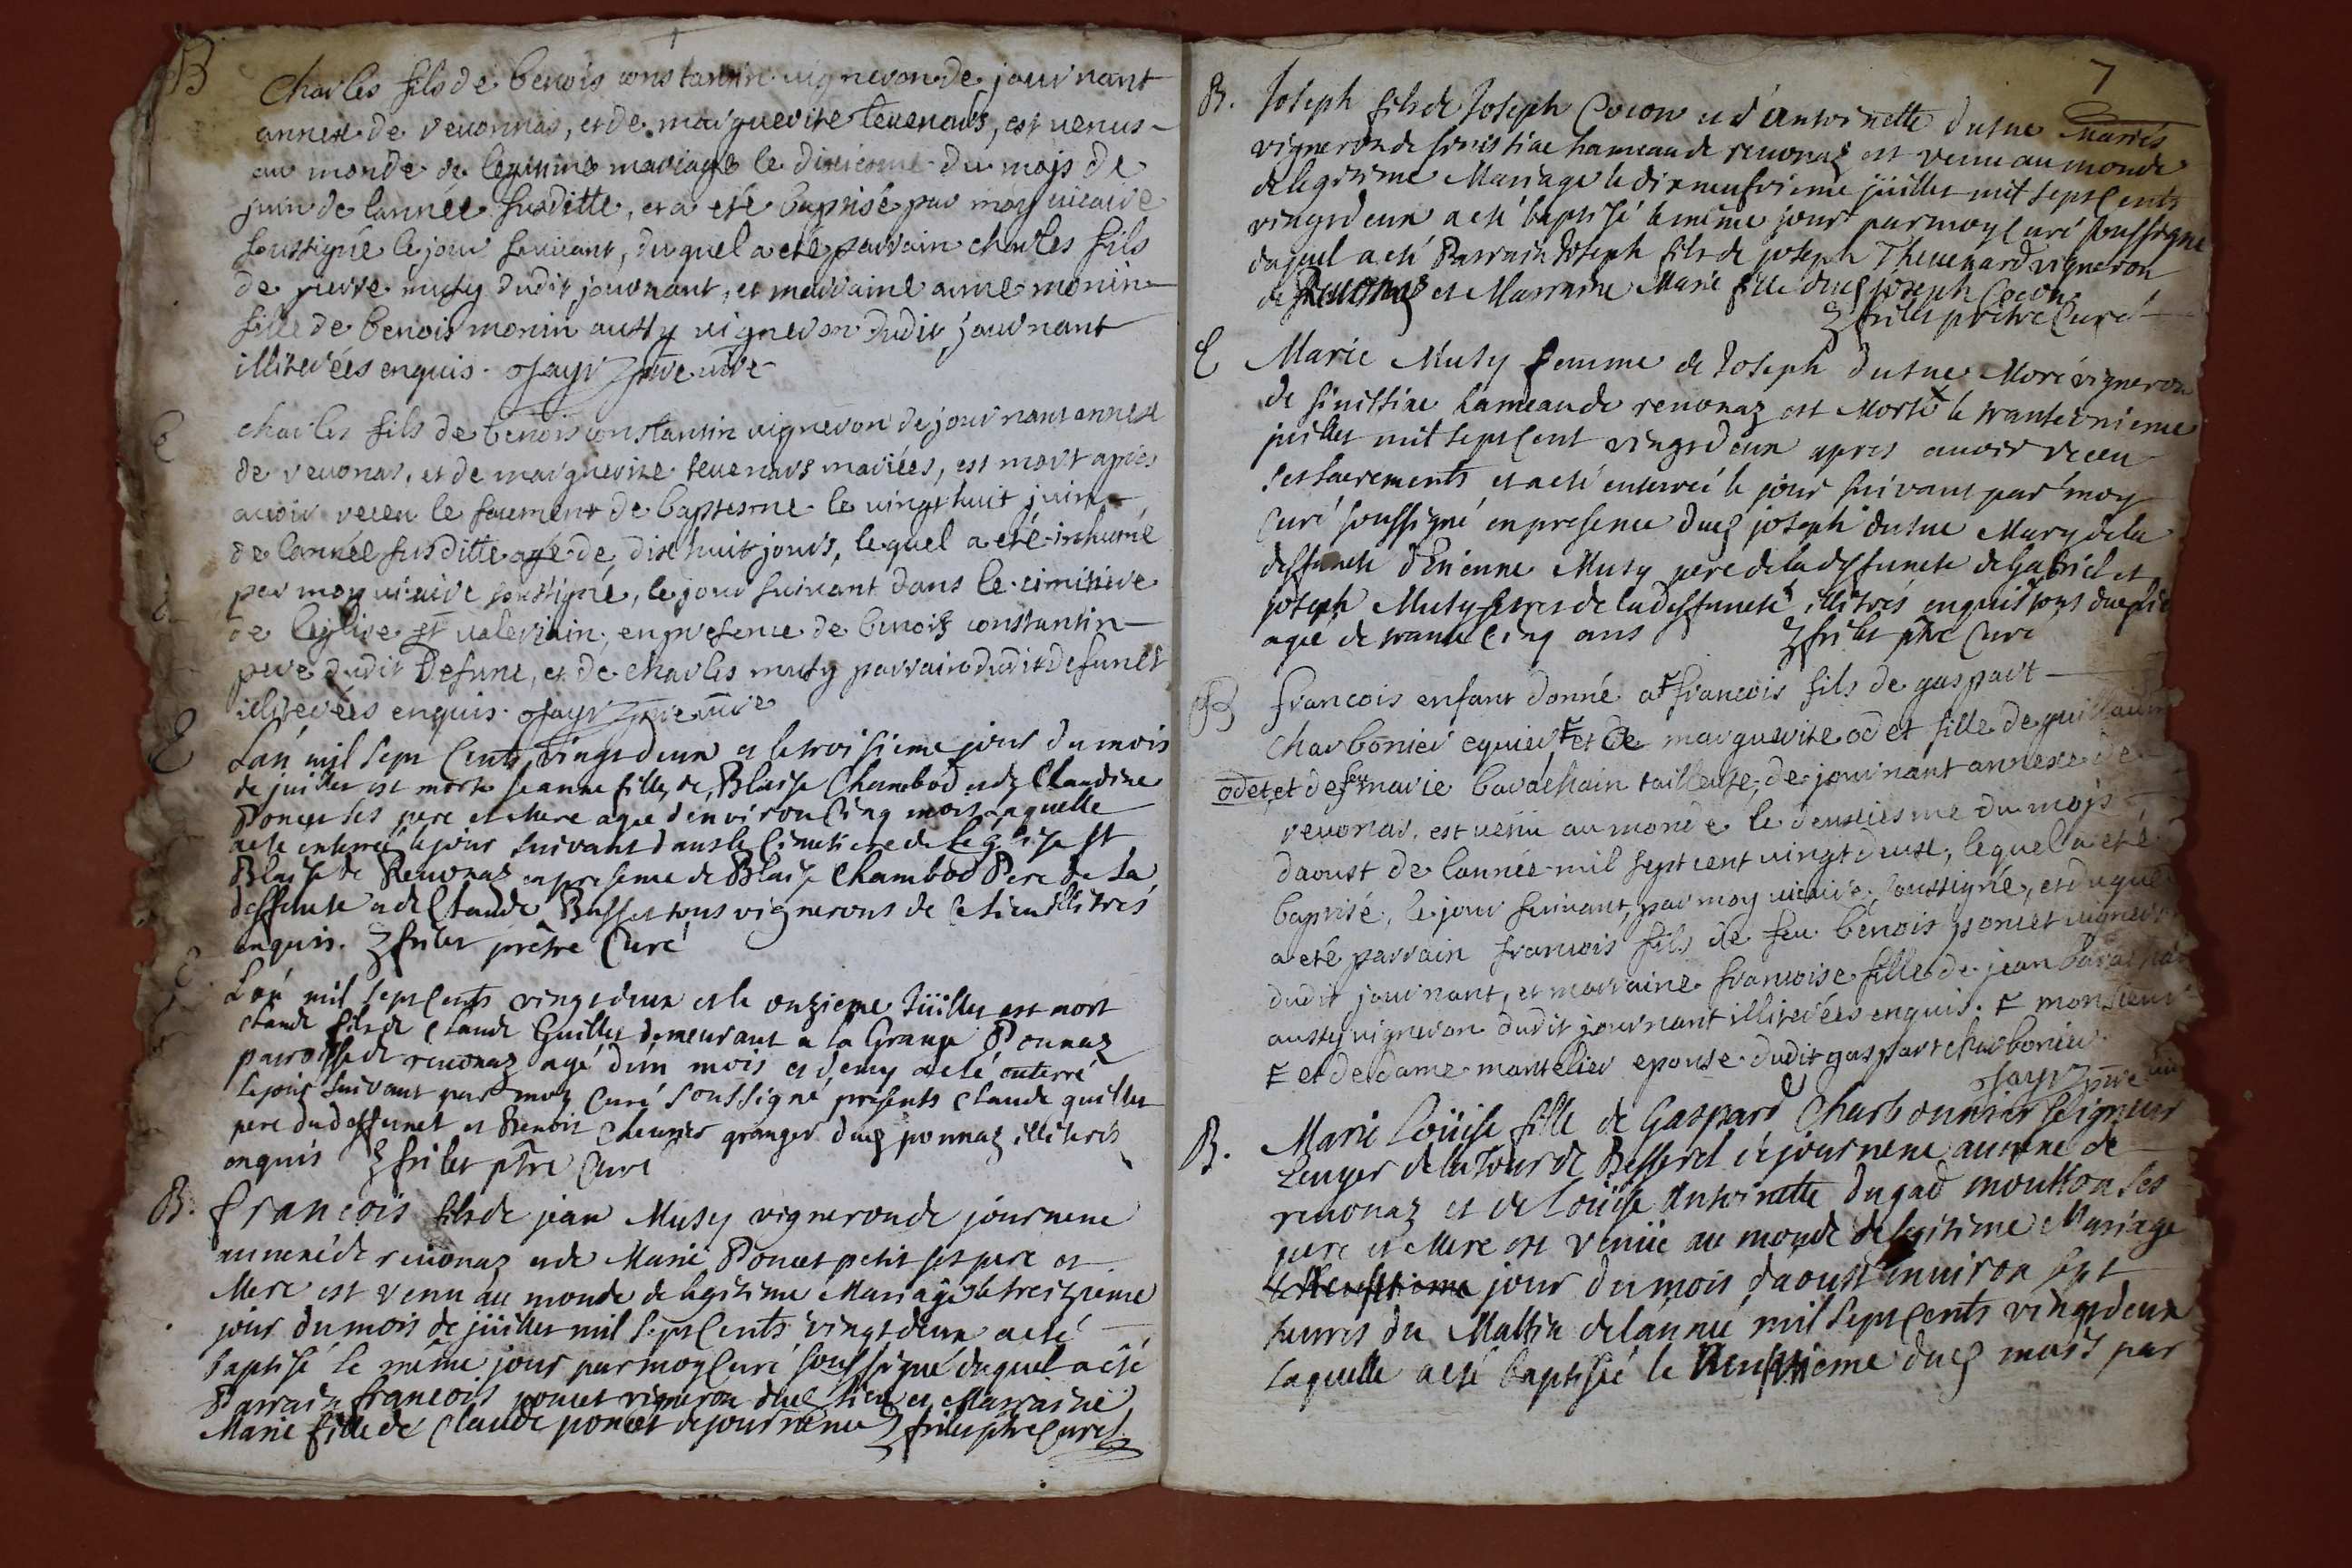 B
Charles fils de benois constantin vigneron de journant
annexe de revonnas, et de marguerite tevenars, est venus
au monde de legitime mariage le dixiesme du mois de
juin de lannée susditte, et a eté baptisé par moy vicaire
soussigné le jour suivant, duquel a eté parrain charles fils
de pierre musy dudit journant, et marraine aime monin
fille de benois monin aussy vigneron dudit journant
illiterées enquis. Jayr ptre vire
E
charles fils de benois constantin vigneron de journant annexe
de revonas, et de marguerite tevenars mariées, est mort apres
avoir receu le sacrement de baptesme le vingt huit juin
de lannée susditte agé de dix huit jours, lequel a eté inhumé
par moy vicaire soussigné, le jour suivant dans le cimitiere
de leglise St valeriain, en presence de benois constantin
pere dudit Defunt, et de charles musy parrain dudit defunct
illiterées enquis. Jayr ptre vire
E
Lan mil sept Cents vingt deux et le troisieme jour du mois
de juillet est morte jeanne fille de Blaise Chambod et de Claudine
Poncet ses pere et Mere agée denviron Cinq mois laquelle
a eté enterrée le jour suivant dans le Cimetiere de leglise St
Blaise de Revonas en presence de Blaise Chambod Pere de la
deffunte et de Claude Buffet tous vignerons de ce lieu illitres
enquis. frilet prêtre Curé
E
Lan mil sept Cents vingt deux et le onzieme Jüillet est mort
Claude fils de Claude Guillet demeurant a la Grange Ponnaz
parroisse de revonaz agé dun mois et demy a eté enterré
le jour suivant par moy Curé soussigné, presents Claude guillet
pere du deffunct et Benoit granger dud ponnaz illiterés
enquis frilet ptre Curé
B.
françois fils de jean Musy vigneron de journene
annexe de revonaz et de Marie Poncet petit ses pere et
Mere est venu au monde de legitime Mariage le treizieme
jour du mois de jüillet mil sept Cents vingt deux a eté
baptisé le même jour par moy Curé soussigné duquel a eté
Parrain françois poncet vigneron dud lieu et Marraine
Marie fille de Claude poncet de journene frilet ptre Curé
7
B.
Joseph fils de Joseph Cocon et d'Antoinette dutue Mariés
vigneron de sinissiae hameau de revonaz est venu au monde
de legitime Mariage le dix neufvieme jüillet mil sept Cents
vingt deux a eté baptisé le même jour par moy Curé soussigné
duquel a eté Parrain Joseph fils de joseph Thevenard vigneron
de Revonnaz et Marraine Marie fille dud joseph Cocon
frilet prêtre Curé
E
Marie Musy femme de Joseph dutue vigneron
de sinissiae hameau de revonaz est Morte le trante unieme
juillet mil sept Cent vingt deux apres avoir receu
ses sacrements et a eté enterrée le jour suivant par moy
Curé soussigné en presence dud joseph dutue Mary de la
deffuncte d'Etienne Musy pere de la deffuncte de Gabriel et
joseph Musy freres de la deffuncte illitrés enquis tous dud lieu
agée de trante Cinq ans frilet ptre Curé
B
francois enfant donné a francois fils de gaspart
charbonier equier et de marguerite odet fille de guillaume
odet, et de feu marie bavachain tailleuse, de journant annexe de
revonas, est venu au monde le deuxiesme du mois
daoust de lannée mil sept cent vingt deux, lequel a eté
baptisé, le jour suivant, par moy vicaire soussigné, et duquel
a eté parrain francois fils de feu benois poncet vigneron
dudit journant, et marraine francoise fille de jean
aussy vigneron dudit journant illiterées enquis. monsieur
et de dame mantelier epouse dudit gaspart charbonier.
Jayr ptre
B.
Marie Loüise fille de Gaspard Charbonnier seigneur
Ecuyer de la Tour de Besserel de journene annexe de
revonaz et de Loüise Antoinette dugad moutton ses
pere et Mere est venüe au monde de legitime Mariage
jour du mois daoust environ sept
heures du Mattin de lannée mil sept Cents vingt deux
laquelle a eté baptisée le dud mois par